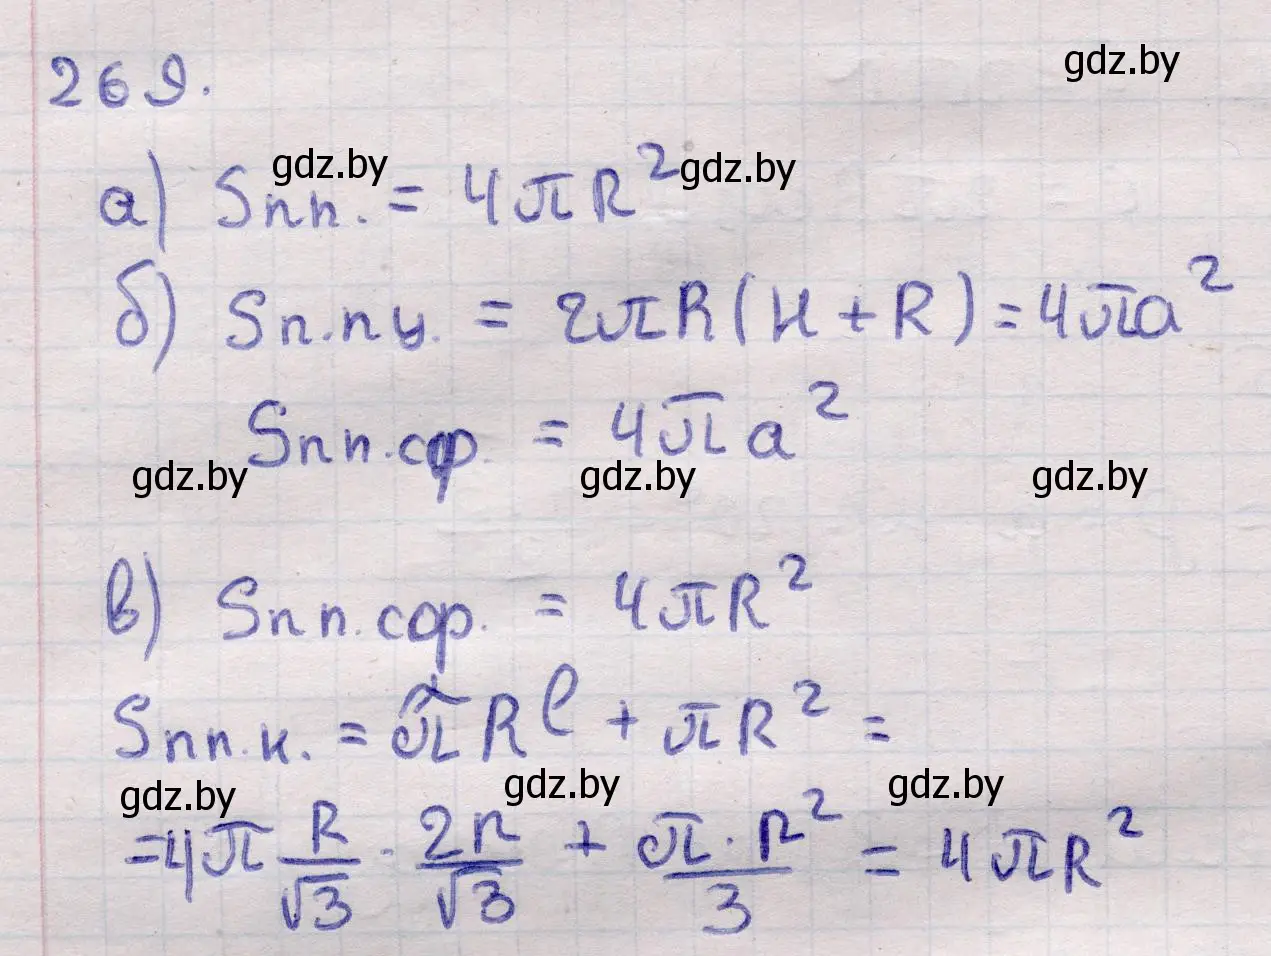 269.
gdz.by
а) Sпп. = 4πR² gdz.by gdz.by
б) Sп.пц. = 2πR(H+R) = 4πa²
Sпп.сф. = 4πa²
gdz.by gdz.by gdz.by
в) Sпп.сф. = 4πR²
Sпп.к. = πRl + πR² =
gdz.by gdz.by gdz.by
=4π R/√3 · 2R/√3 + π·R²/3 = 4πR²